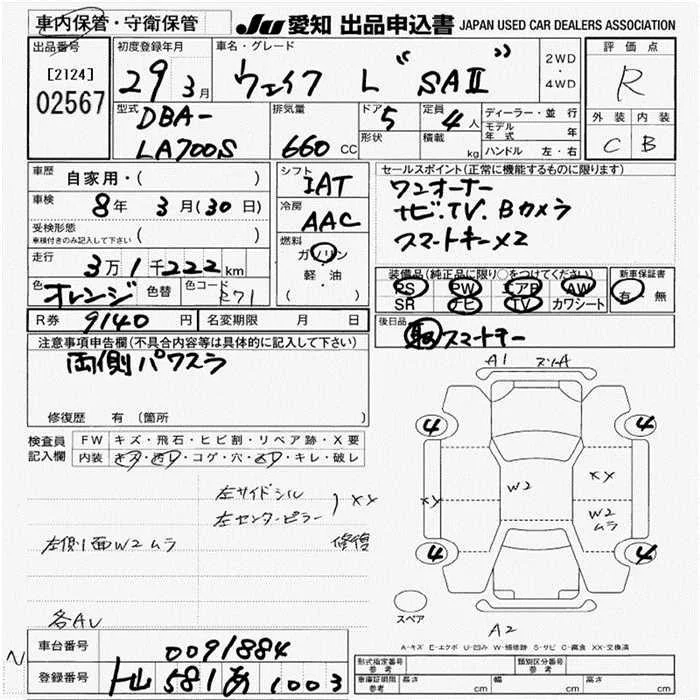 車内保管・守衛保管
JU 愛知 出品申込書 JAPAN USED CAR DEALERS ASSOCIATION
出品番号 [2124] 02567
初度登録年月 29 3月
車名・グレード ウェイク L “SAⅡ”
2WD・4WD
評価点 R
外装 内装
C B
型式 DBA-LA700S
排気量 660 CC
ドア 5
形状
定員 4人
積載 kg
ディーラー・並行
モデル年式 年
ハンドル 左・右
車歴 自家用・( )
車検 8年 3月(30日)
受検形態 車検付きのみ記入して下さい ( )
走行 3万1千222km
色 オレンジ 色替 色コード R71
シフト IAT
冷房 AAC
燃料 ガソリン・軽・油 ( )
セールスポイント(正常に機能するものに限ります)
ワンオーナー
ナビ.TV.Bカメラ
スマートキー×2
装備品(純正品に限り○をつけてください)
PS PW エアB AW
SR ナビ TV カワシート
新車保証書 有・無
R券 9140円 名変期限 月 日
後日品 取 スマートキー
注意事項申告欄(不具合内容等は具体的に記入して下さい)
両側パワスラ
修復歴 有(箇所
検査員記入欄
FW キズ・飛石・ヒビ割・リペア跡・X要
内装 キズ・汚レ・コゲ・穴・スレ・キレ・破レ
左サイドシル
左センターピラー ) XX
修復
左側面W2ムラ
各AU
A1
4 4
XX W2 XX
W2 ムラ
4 4
スペア
A2
A-キズ E-エクボ U-凹み W-補修跡 S-サビ C-腐食 XX-交換済
車台番号 0091884
登録番号 581 あ 1003
形式指定番号 参考
類別区分番号 参考
車庫証明限 参考 長さ cm 幅 cm 高さ cm